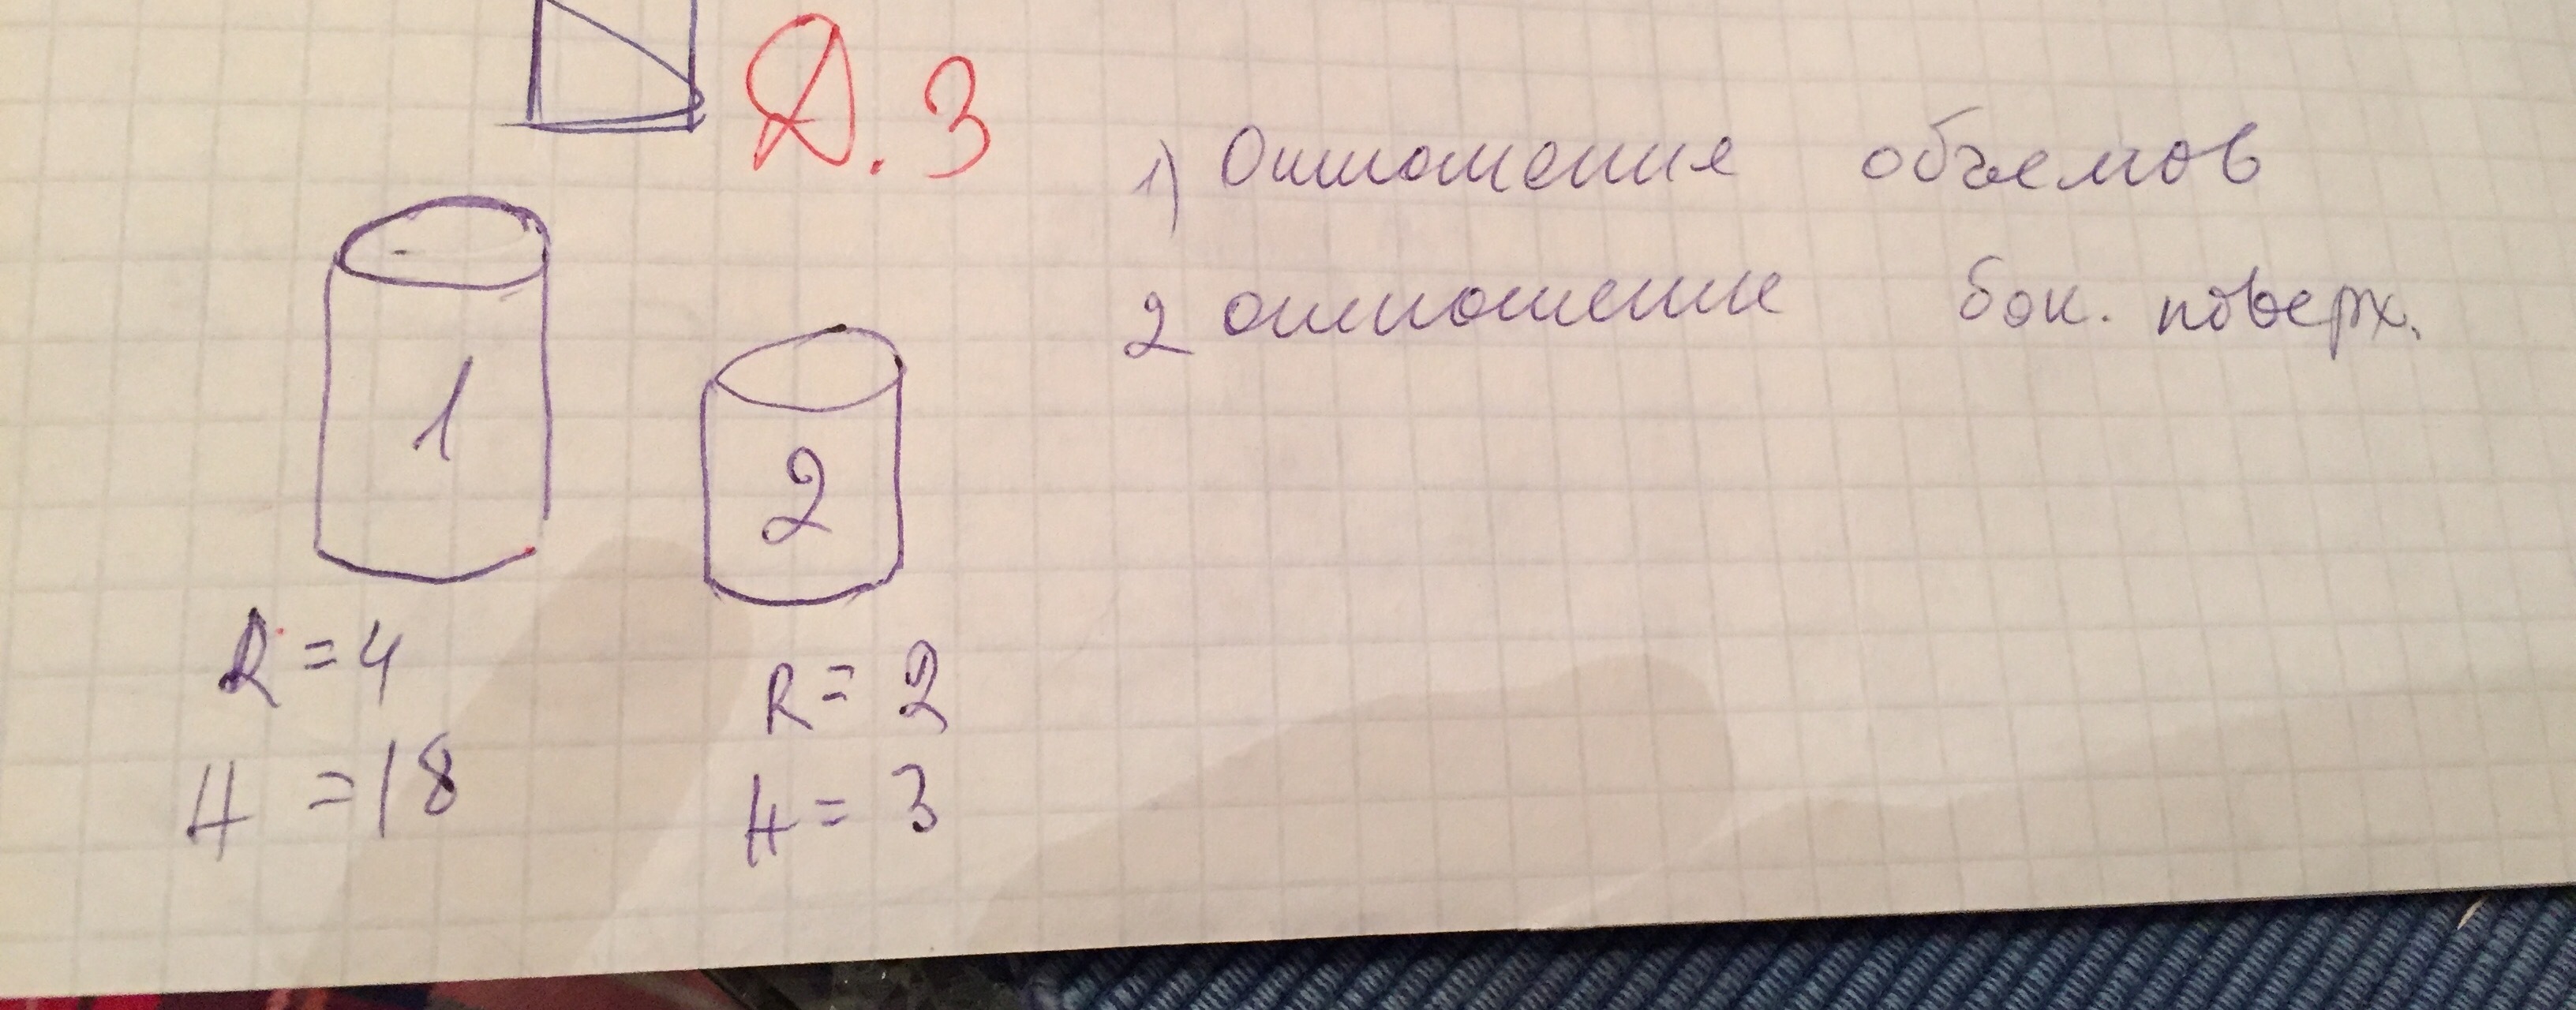 Д.З
1) Отношение объемов
2 отношение бок. поверх.
1
2
R = 4
H = 18
R = 2
H = 3